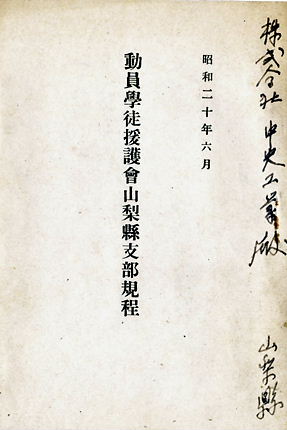 株式会社 中央工業殿
山梨縣
昭和二十年六月
動員學徒援護會山梨縣支部規程